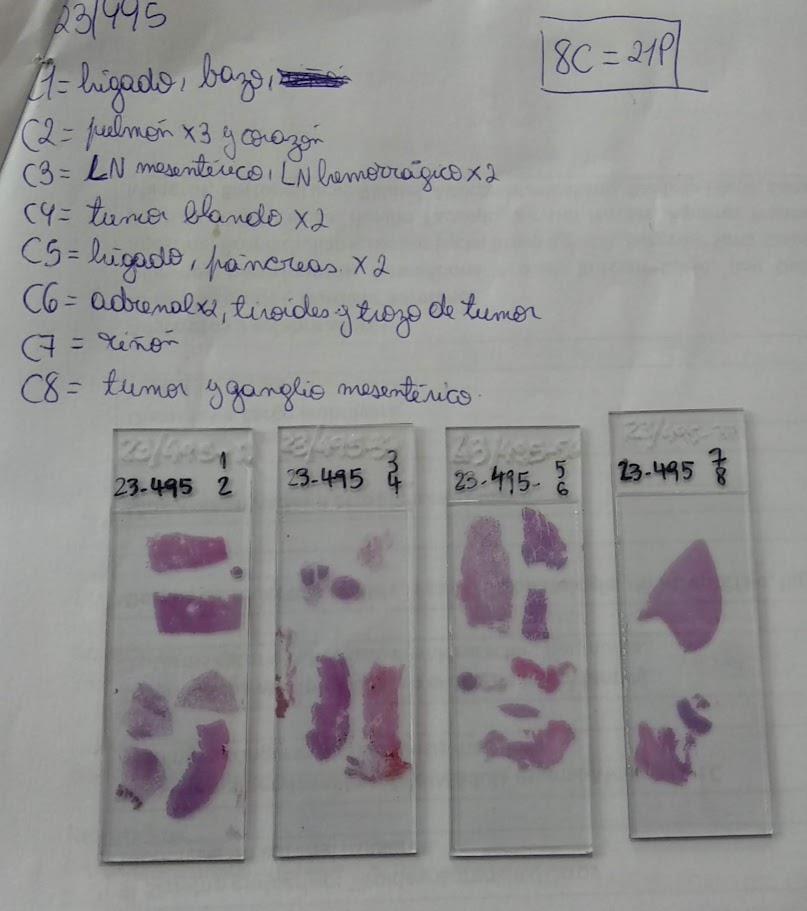 23/495
8C = 21P
C1 = hígado, bazo,
C2 = pulmón x3 y corazón
C3 = LN mesentérico, LN hemorrágico x2
C4 = tumor blando x2
C5 = hígado, páncreas x2
C6 = adrenal x2, tiroides y trozo de tumor
C7 = riñón
C8 = tumor y ganglio mesentérico.
23-495 1
2
23-495 3
4
23-495- 5
6
23-495 7
8